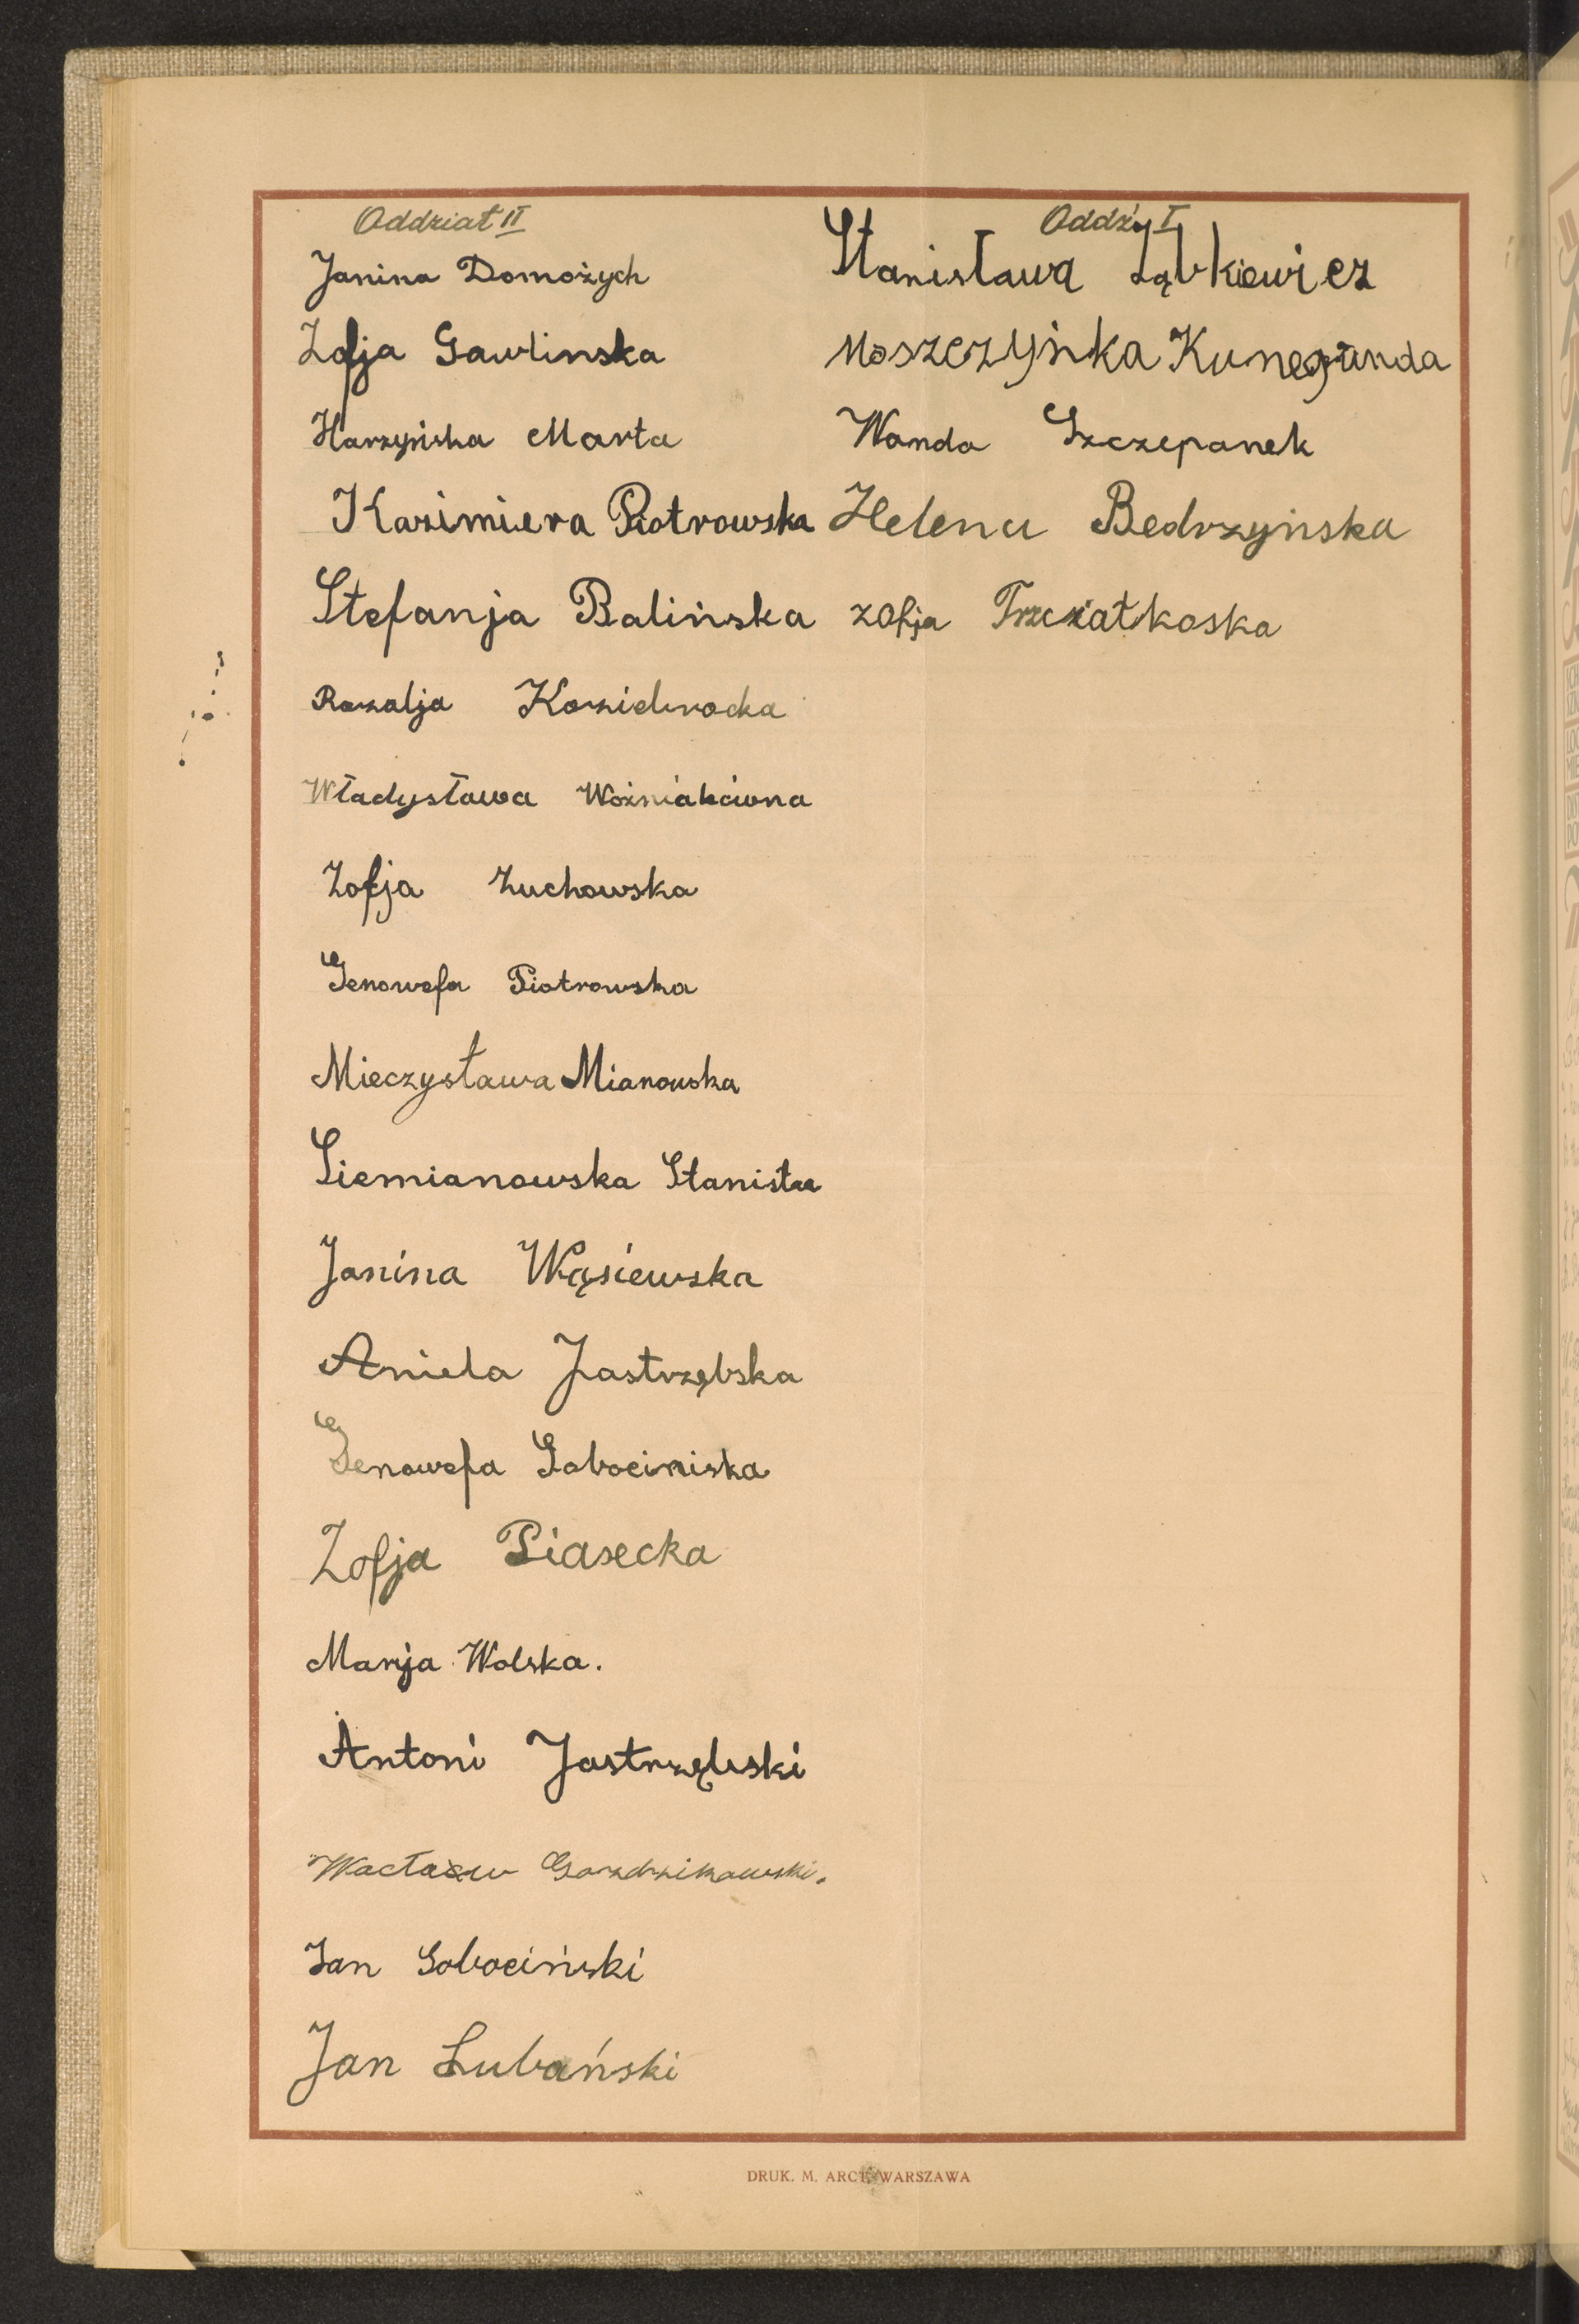 Oddział II
Janina Domożych
Zofja Gawlinska
Harzyńska Marta
Kazimiera Piotrowska
Stefanja Balińska
Rozalja Koziebrocka
Władysława Woźniakówna
Zofja Żuchowska
Genowefa Piotrowska
Mieczysława Mianowska
Siemianowska Stanisła
Janina Wąsiewska
Aniela Jastrzębska
Genowefa Sobocińiska
Zofja Piasecka
Marja Wolska.
Antoni Jastrzębski
Wacław Gozdzikowski.
Jan Sobociński
Jan Lubański
Oddz. I
Stanisława Ząbkiewicz
Moszczyńka Kunegunda
Wanda Szczepanek
Helena Bedrzyńska
zofja Trzciatkoska
DRUK. M. ARCT, WARSZAWA